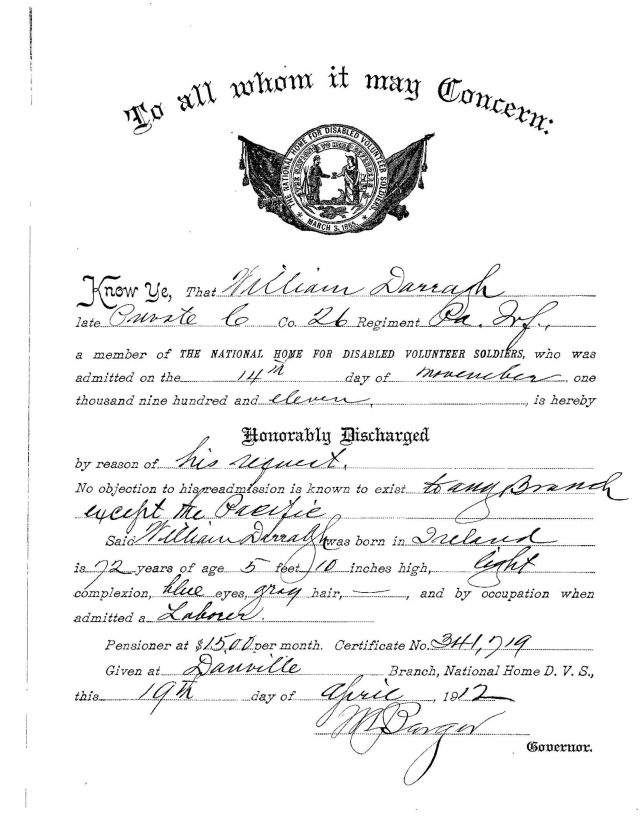 To all whom it may Concern:
THE NATIONAL HOME FOR DISABLED VOLUNTEER SOLDIERS,
MARCH 3, 1865.
Know Ye, That William Darragh
late Private C Co. 26 Regiment Pa. Inf.,
a member of THE NATIONAL HOME FOR DISABLED VOLUNTEER SOLDIERS, who was
admitted on the 14th day of november, one
thousand nine hundred and eleven, , is hereby
Honorably Discharged
by reason of his request.
No objection to his readmission is known to exist to any Branch
except the Pacific
Said William Darragh was born in Ireland
is 72 years of age 5 feet 10 inches high, light
complexion, blue eyes, gray hair, — , and by occupation when
admitted a Laborer.
Pensioner at $15.00 per month. Certificate No. 341,719
Given at Danville Branch, National Home D. V. S.,
this 19th day of april , 1912
Governor.